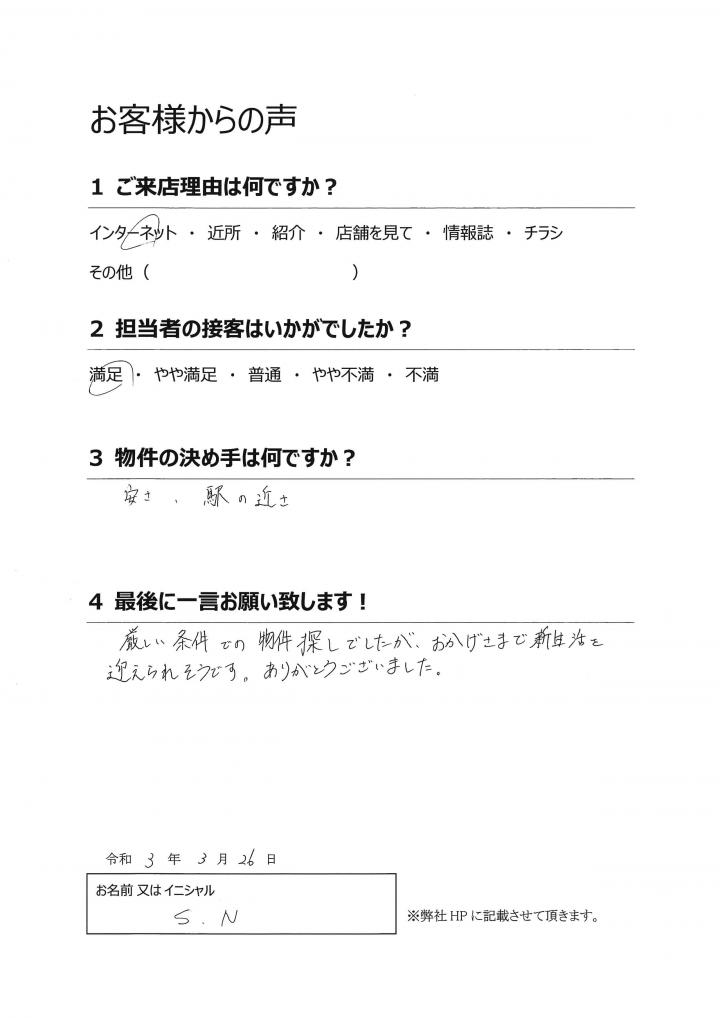 お客様からの声
1 ご来店理由は何ですか？
インターネット ・ 近所 ・ 紹介 ・ 店舗を見て ・ 情報誌 ・ チラシ
その他（ ）
2 担当者の接客はいかがでしたか？
満足 ・ やや満足 ・ 普通 ・ やや不満 ・ 不満
3 物件の決め手は何ですか？
安さ 、 駅の近さ
4 最後に一言お願い致します！
厳しい条件での物件探しでしたが、おかげさまで新生活を
迎えられそうです。ありがとうございました。
令和 3 年 3 月 26 日
お名前 又は イニシャル
S.N
※弊社 HP に記載させて頂きます。